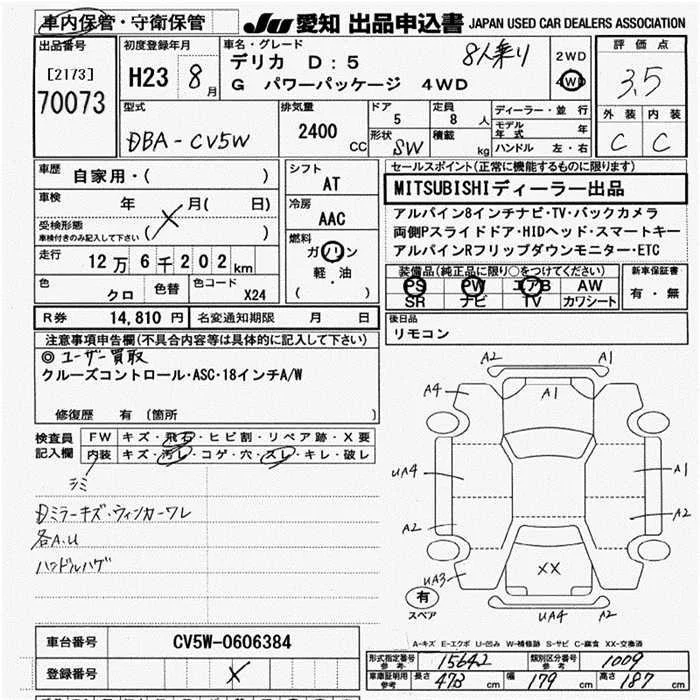 車内保管・守衛保管
JU 愛知 出品申込書 JAPAN USED CAR DEALERS ASSOCIATION
出品番号
[2173]
70073
初度登録年月
H23 8 月
車名・グレード
デリカ D:5 8人乗り
G パワーパッケージ 4WD
2WD
4WD
評価点
3.5
外装 内装
C C
型式
DBA-CV5W
排気量
2400 CC
ドア
5
形状
SW
定員
8 人
積載
kg
ディーラー・並行
モデル年式 年
ハンドル 左・右
車歴
自家用・( )
車検 年 月( 日)
受検形態
車検付きのみ記入して下さい ( )
走行 12万6千202km
色 クロ 色替 色コード X24
シフト
AT
冷房
AAC
燃料
ガソリン
軽・油
( )
セールスポイント(正常に機能するものに限ります)
MITSUBISHIディーラー出品
アルパイン8インチナビ・TV・バックカメラ
両側Pスライドドア・HIDヘッド・スマートキー
アルパインRフリップダウンモニター・ETC
装備品(純正品に限り○をつけてください)
PS PW エアB AW
SR ナビ TV カワシート
新車保証書
有・無
R券 14,810円 名変通知期限 月 日
後日品
リモコン
注意事項申告欄(不具合内容等は具体的に記入して下さい)
◎ユーザー買取
クルーズコントロール・ASC・18インチA/W
修復歴 有 (箇所 )
検査員
記入欄
FW キズ・飛石・ヒビ割・リペア跡・X要
内装 キズ・汚レ・コゲ・穴・スレ・キレ・破レ
シミ
Dミラーキズ・ウィンカーワレ
各A.U
ハンドルハゲ
A2 A1
A4 A1
UA4 A1
A2 A2
UA3 XX
UA4 A2
有
スペア
A-キズ E-エクボ U-凹み W-補修跡 S-サビ C-腐食 XX-交換済
車台番号 CV5W-0606384
登録番号
形式指定番号
参考
15642
類別区分番号
参考
1009
車庫証明用
参考
長さ 473 cm 幅 179 cm 高さ 187 cm